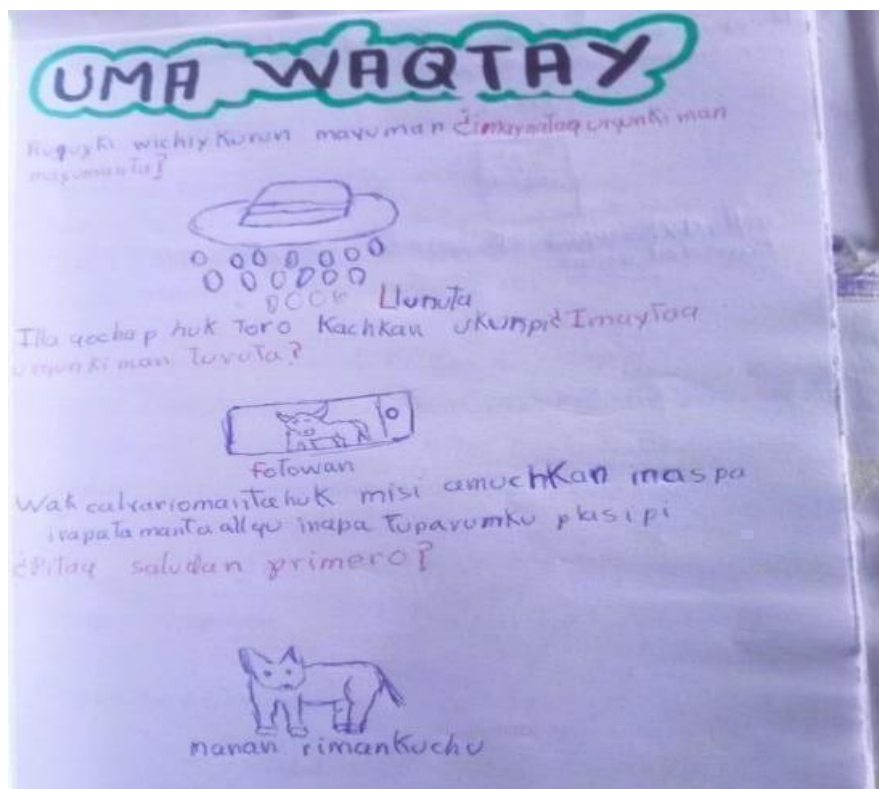 UMA WAQTAY
wichiykurun mayuman ¿imaynataq urqunkiman
mayumanta?
Llunuta
Illa qochap huk Toro Kachkan ukunpi ¿Imaytaq
urqunkiman Turuta?
foTowan
Wak calvariomanta huk misi amuchKan maspa
allqu tuparunku plasapi
¿Pitaq saludan primero?
manan rimanKuchu